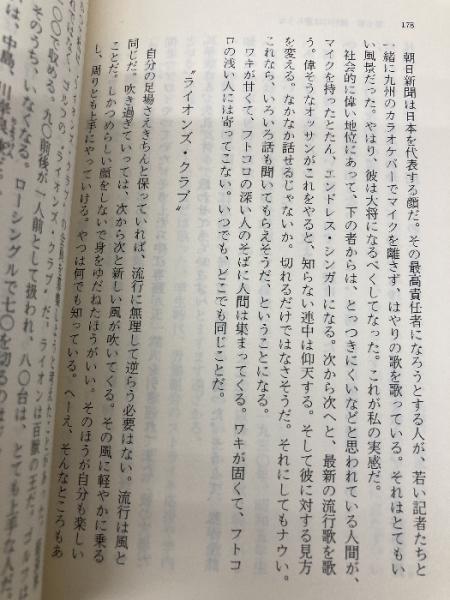 178
朝日新聞は日本を代表する顔だ。その最高責任者になろうとする人が、若い記者たちと
一緒に九州のカラオケバーでマイクを離さず、はやりの歌を歌っている。それはとてもい
い風景だった。やはり、彼は大将になるべくしてなった。これが私の実感だ。
社会的に偉い地位にあって、下の者からは、とっつきにくいなどと思われている人間が、
マイクを持ったとたん、エンドレス・シンガーになる。次から次へと、最新の流行歌を歌
う。偉そうなオッサンがこれをやると、知らない連中は仰天する。そして彼に対する見方
を変える。なかなか話せるじゃないか。切れるだけではなさそうだ。それにしてもナウい。
これなら、いろいろ話も聞いてもらえそうだ、ということになる。
ワキが甘くて、フトコロの深い人のそばに人間は集まってくる。ワキが固くて、フトコ
ロの浅い人には寄ってこない。いつでも、どこでも同じことだ。
〝ライオンズ・クラブ〟
自分の足場さえきちんと保っていれば、流行に無理して逆らう必要はない。流行は風と
同じだ。吹き過ぎていっては、次から次と新しい風が吹いてくる。その風に軽やかに乗る
ことだ。しかつめらしい顔をしないで身をゆだねたほうがいい。そのほうが自分も楽し
し、周りともと手にやっていける。やつは何でも知っている。へーえ、そんなところもあ
ライオンズ・クラブ〟だ。ライオンは百獣の王だ。ゴルフは
〇〇で収める。九〇前後が一人前として扱われ、八〇台は、とても上手な人だ。
そのうち、いなくなる。ローシングルで七〇を切るのは
は、中島、川岸